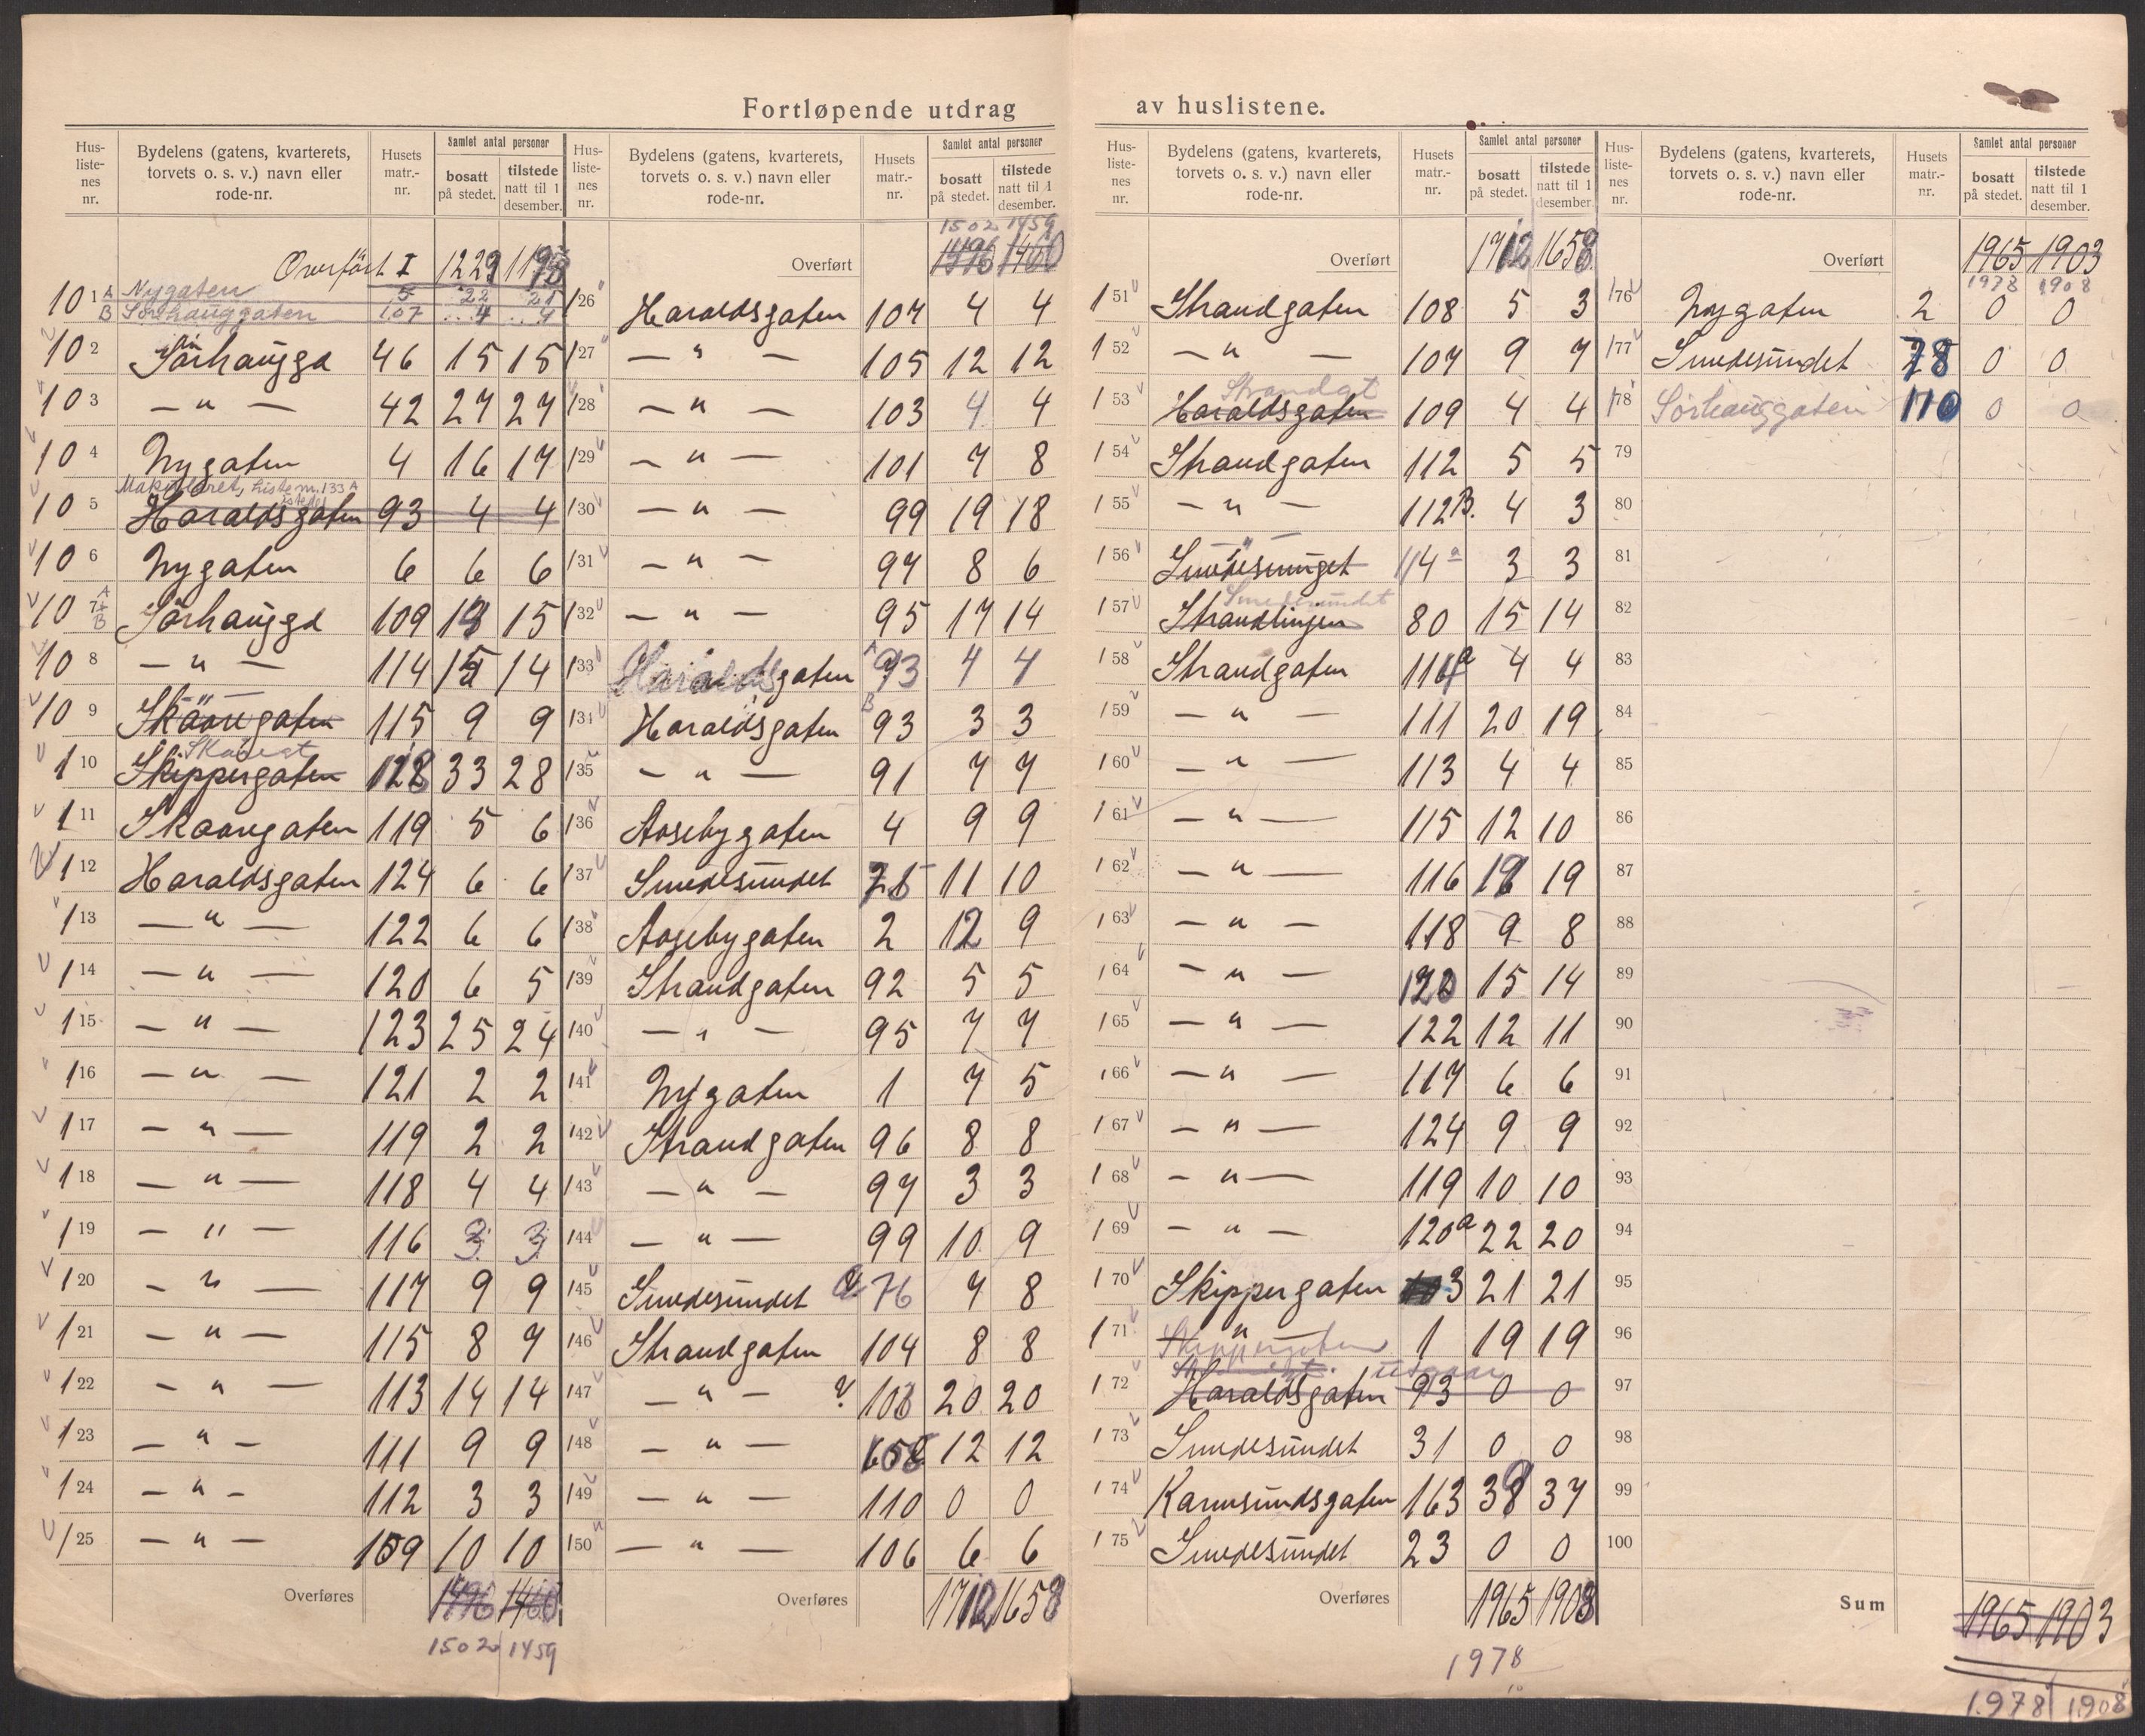 Fortløpende utdrag av huslistene.
Hus-liste-nes nr. Bydelens (gatens, kvarterets, torvets o. s. v.) navn eller rode-nr. Husets matr.-nr. Samlet antal personer bosatt på stedet. tilstede natt til 1 desember.
Overført I 1229 1198
101 A Nygaten 5 22 21
B Sørhauggaten 107 4 4
102 Sørhauggd 46 15 15
103 — " — 42 27 27
104 Nygaten 4 16 17
Makuleret, liste nr. 133 A istedet
105 Haraldsgaten 93 4 4
106 Nygaten 6 6 6
107 A B Sørhauggd 109 13 15
108 — " — 114 15 14
— " —
109 Skaaregaten 115 9 9
Skaaregt
110 Skippergaten 128 33 28
111 Skaaregaten 119 5 6
112 Haraldsgaten 124 6 6
113 — " — 122 6 6
114 — " — 120 6 5
115 — " — 123 25 24
116 — " — 121 2 2
117 — " — 119 2 2
118 — " — 118 4 4
119 — " — 116 3 3
120 — " — 117 9 9
121 — " — 115 8 7
122 — " — 113 14 14
123 — " — 111 9 9
124 — " — 112 3 3
125 — " — 109 10 10
Overføres 1496 1460
1502 1459
Hus-liste-nes nr. Bydelens (gatens, kvarterets, torvets o. s. v.) navn eller rode-nr. Husets matr.-nr. Samlet antal personer bosatt på stedet. tilstede natt til 1 desember.
1502 1459
Overført 1496 1460
126 Haraldsgaten 107 4 4
127 — " — 105 12 12
128 — " — 103 4 4
129 — " — 101 7 8
130 — " — 99 19 18
131 — " — 97 8 6
132 — " — 95 17 14
133 Haraldsgaten A 93 4 4
134 Haraldsgaten B 93 3 3
135 — " — 91 7 7
136 Aasebygaten 4 9 9
137 Smedesundet 75 11 10
138 Aasebygaten 2 12 9
139 Strandgaten 92 5 5
140 — " — 95 7 7
141 Nygaten 1 7 5
142 Strandgaten 96 8 8
143 — " — 97 3 3
144 — " — 99 10 9
145 Smedesundet 76 7 8
146 Strandgaten 104 8 8
147 — " — 103 20 20
148 — " — 12 12
149 — " — 110 0 0
150 — " — 106 6 6
Overføres 1712 1658
Hus-liste-nes nr. Bydelens (gatens, kvarterets, torvets o. s. v.) navn eller rode-nr. Husets matr.-nr. Samlet antal personer bosatt på stedet. tilstede natt til 1 desember.
Overført 1712 1658
151 Strandgaten 108 5 3
152 — " — 107 9 7
Strandgt
153 Haraldsgaten 109 4 4
154 Strandgaten 112 5 5
155 — " — 112B. 4 3
— " —
156 Smedesunget 114 a 3 3
Smedesundet
157 Strandlinjen 80 15 14
158 Strandgaten 4 4
159 — " — 111 20 19
160 — " — 113 4 4
161 — " — 115 12 10
162 — " — 116 18 19
163 — " — 118 9 8
164 — " — 120 15 14
165 — " — 122 12 11
166 — " — 117 6 6
167 — " — 124 9 9
168 — " — 119 10 10
169 — " — 120a 22 20
170 Skippergaten 3 21 21
171 Skippergaten 1 19 19
utgaar
172 Haraldsgaten 93 0 0
173 Smedesundet 31 0 0
174 Karmsundsgaten 163 38 37
175 Smedesundet 23 0 0
Overføres 1965 1908
1978
Hus-liste-nes nr. Bydelens (gatens, kvarterets, torvets o. s. v.) navn eller rode-nr. Husets matr.-nr. Samlet antal personer bosatt på stedet. tilstede natt til 1 desember.
Overført 1965 1903
1978 1908
176 Nygaten 2 0 0
177 Smedesundet 78 0 0
178 Sørhauggaten 110 0 0
79
80
81
82
83
84
85
86
87
88
89
90
91
92
93
94
95
96
97
98
99
100
Sum 1965 1903
1978 1908